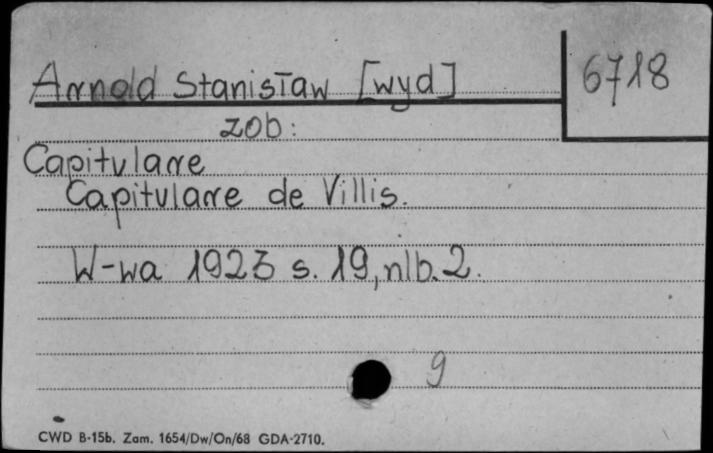 Arnold Stanisław [wyd]
6718
zob:
Capitulare
Capitulare de Villis.
W-wa 1923 s. 19, nlb. 2.
9
CWD B-15b. Zam. 1654/Dw/On/68 GDA-2710.